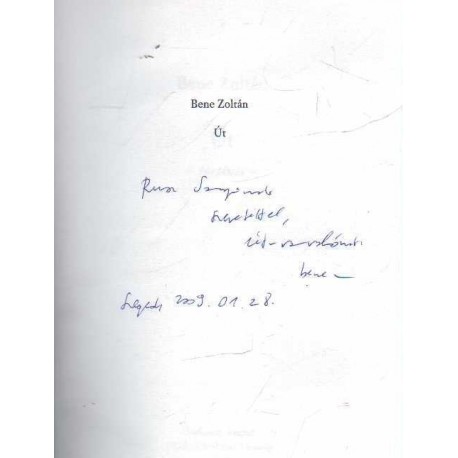 Bene Zoltán
Út
Rusz Sándornak
szeretettel,
út-
bene
Szeged, 2009. 01. 28.